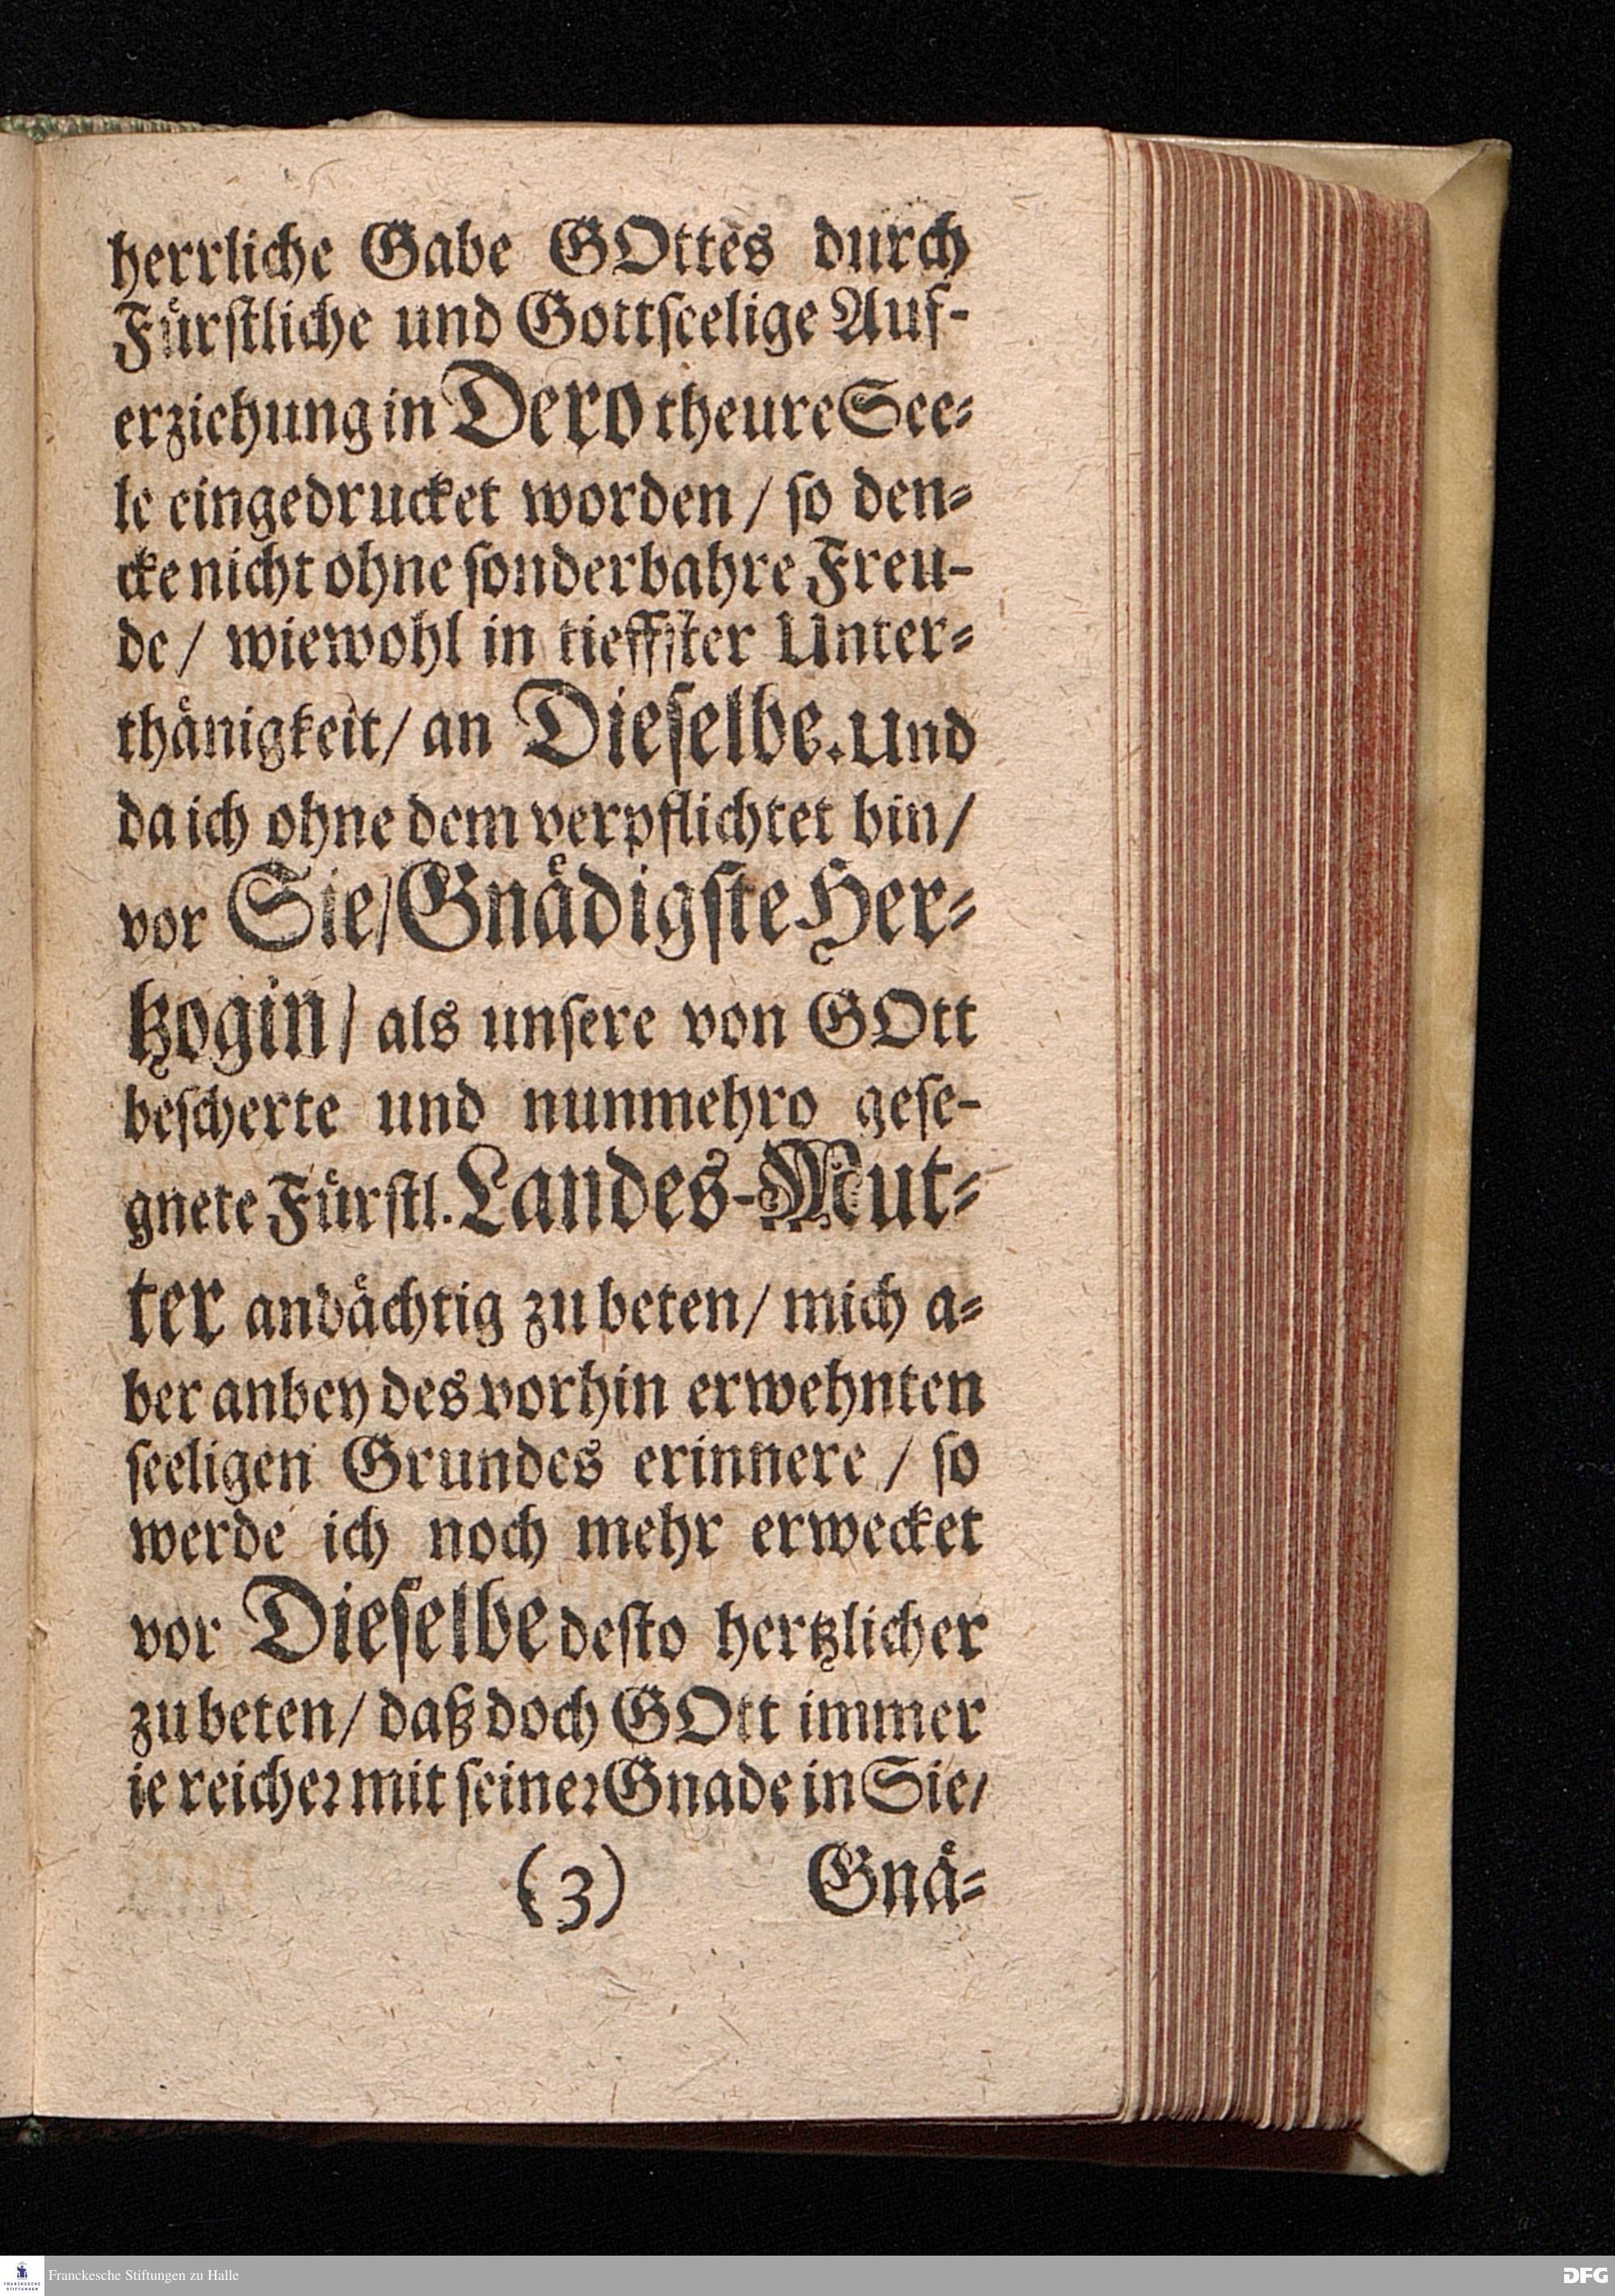 herrliche Gabe GOttes durch
Fürſtliche und Gottſeelige Auf-
erziehung in Dero theure See-
le eingedrucket worden / ſo den-
cke nicht ohne ſonderbahre Freu-
de / wiewohl in tieffſter Unter-
thänigkeit / an Dieſelbe. Und
da ich ohne dem verpflichtet bin /
vor Sie / Gnädigſte Her-
tzogin / als unſere von GOtt
beſcherte und nunmehro geſe-
gnete Fürſtl. Landes-Mut-
ter andächtig zu beten / mich a-
ber anbey des vorhin erwehnten
ſeeligen Grundes erinnere / ſo
werde ich noch mehr erwecket
vor Dieſelbe deſto hertzlicher
zu beten / daß doch GOtt immer
ie reicher mit ſeiner Gnade in Sie /
(3) Gnä-
FRANCKESCHE STIFTUNGEN
Franckesche Stiftungen zu Halle
DFG